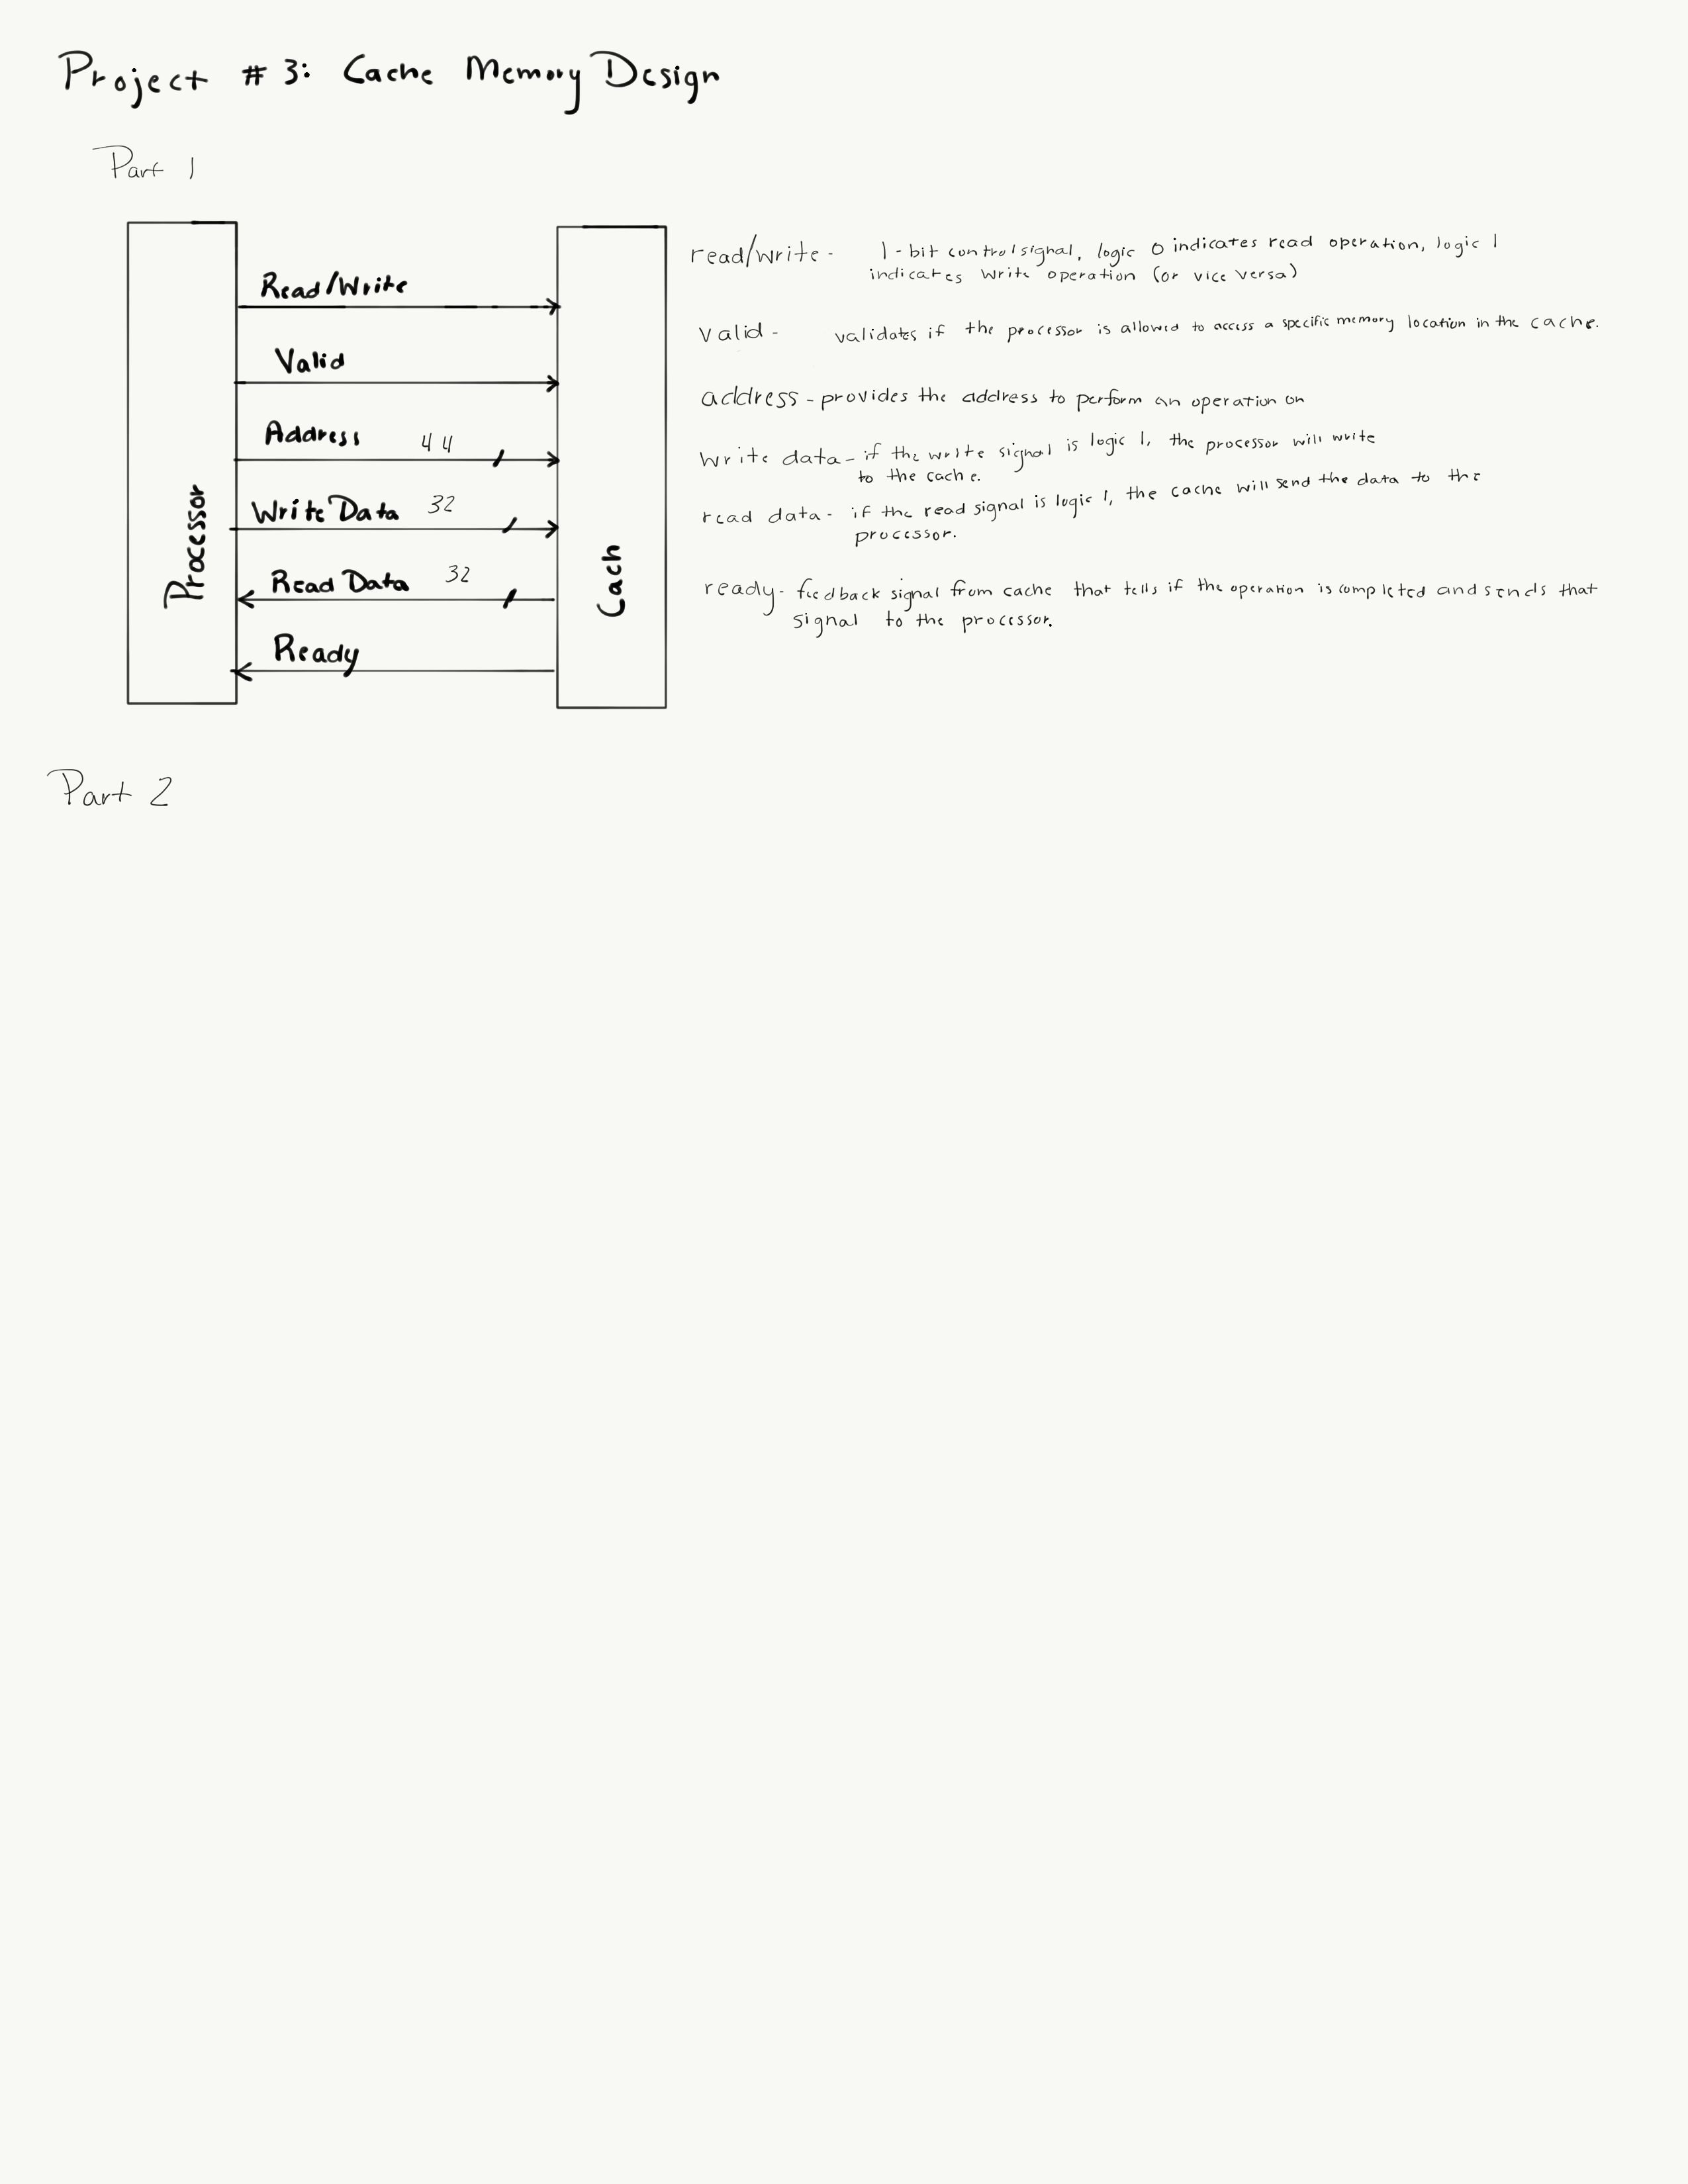 Project # 3: Cache Memory Design
Part 1
Read/Write
Valid
Address 44
Write Data 32
Read Data 32
Ready
Processor
Cach
read/write - 1-bit control signal, logic 0 indicates read operation, logic 1
indicates write operation (or vice versa)
valid - validates if the processor is allowed to access a specific memory location in the cache.
address - provides the address to perform an operation on
write data - if the write signal is logic 1, the processor will write
to the cache.
read data - if the read signal is logic 1, the cache will send the data to the
processor.
ready - feedback signal from cache that tells if the operation is completed and sends that
signal to the processor.
Part 2